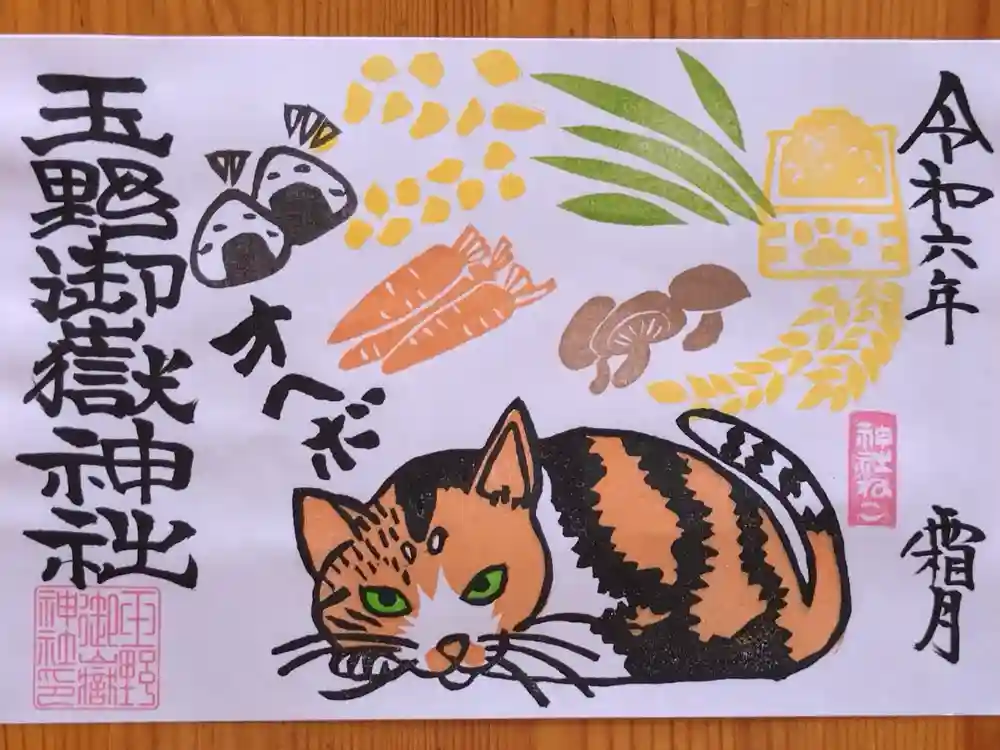 令和六年
霜月
神社ねこ
オヘボ
玉野御嶽神社
玉野
御嶽
神社印